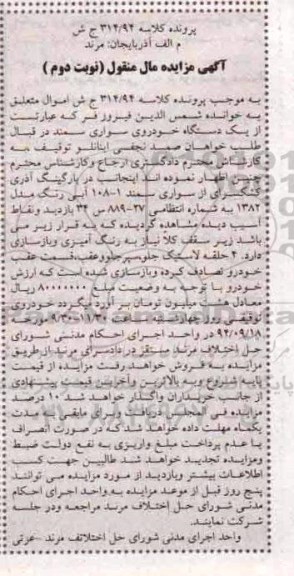 پرونده کلاسه ۳۱۴/۹۴ ج ش
م الف آذربایجان: مرند
آگهی مزایده مال منقول (نوبت دوم)
به موجب پرونده کلاسه ۳۱۴/۹۴ ج ش اموال متعلق
به خوانده شمس الدین فیروز فر که عبارتست
از یک دستگاه خودروی سواری سمند در قبال
طلب خواهان صمد نجفی اینانلو توقیف به
کارشناس محترم دادگستری ارجاع و کارشناس محترم
اظهار نموده اند اینجانب در پارکینگ آذری
از سواری سمند ۱-۱۰۸ آبی رنگ مدل
۱۳۸۲ به شماره انتظامی ۲۷-۸۸۹ س ۳۴ بازدید و نقاط
آسیب دیده مشاهده گردیده که به قرار زیر می
باشد زیر سقف کلا نیاز به رنگ آمیزی و بازسازی
دارد. ۲ حلقه لاستیک جلو، سپر جلو و عقب، قسمت عقب
خودرو تصادف کرده و بازسازی شده است که ارزش
خودرو با توجه به وضعیت مبلغ ۸۰۰۰۰۰۰۰ ریال
معادل هشت میلیون تومان برآورد میگردد خودروی
توقیفی روز چهارشنبه
۹۴/۰۹/۱۸ در واحد اجرای احکام مدنی شورای
حل اختلاف مرند مستقر در دادسرای مرند از طریق
مزایده به فروش خواهد رفت مزایده از قیمت
پایه شروع و به بالاترین و آخرین قیمت پیشنهادی
از جانب خریداران واگذار خواهد شد ۱۰ درصد
مزایده فی المجلس دریافت و برای مابقی به مدت
یکماه مهلت داده خواهد شد که در صورت انصراف
یا عدم پرداخت مبلغ واریزی به نفع دولت ضبط
و مزایده تجدید خواهد شد طالبین جهت کسب
اطلاعات بیشتر و بازدید از مورد مزایده می توانند
پنج روز قبل از موعد مزایده به واحد اجرای احکام
مدنی شورای حل اختلاف مرند مراجعه و در جلسه
شرکت نمایند.
واحد اجرای مدنی شورای حل اختلاف مرند -عزتی